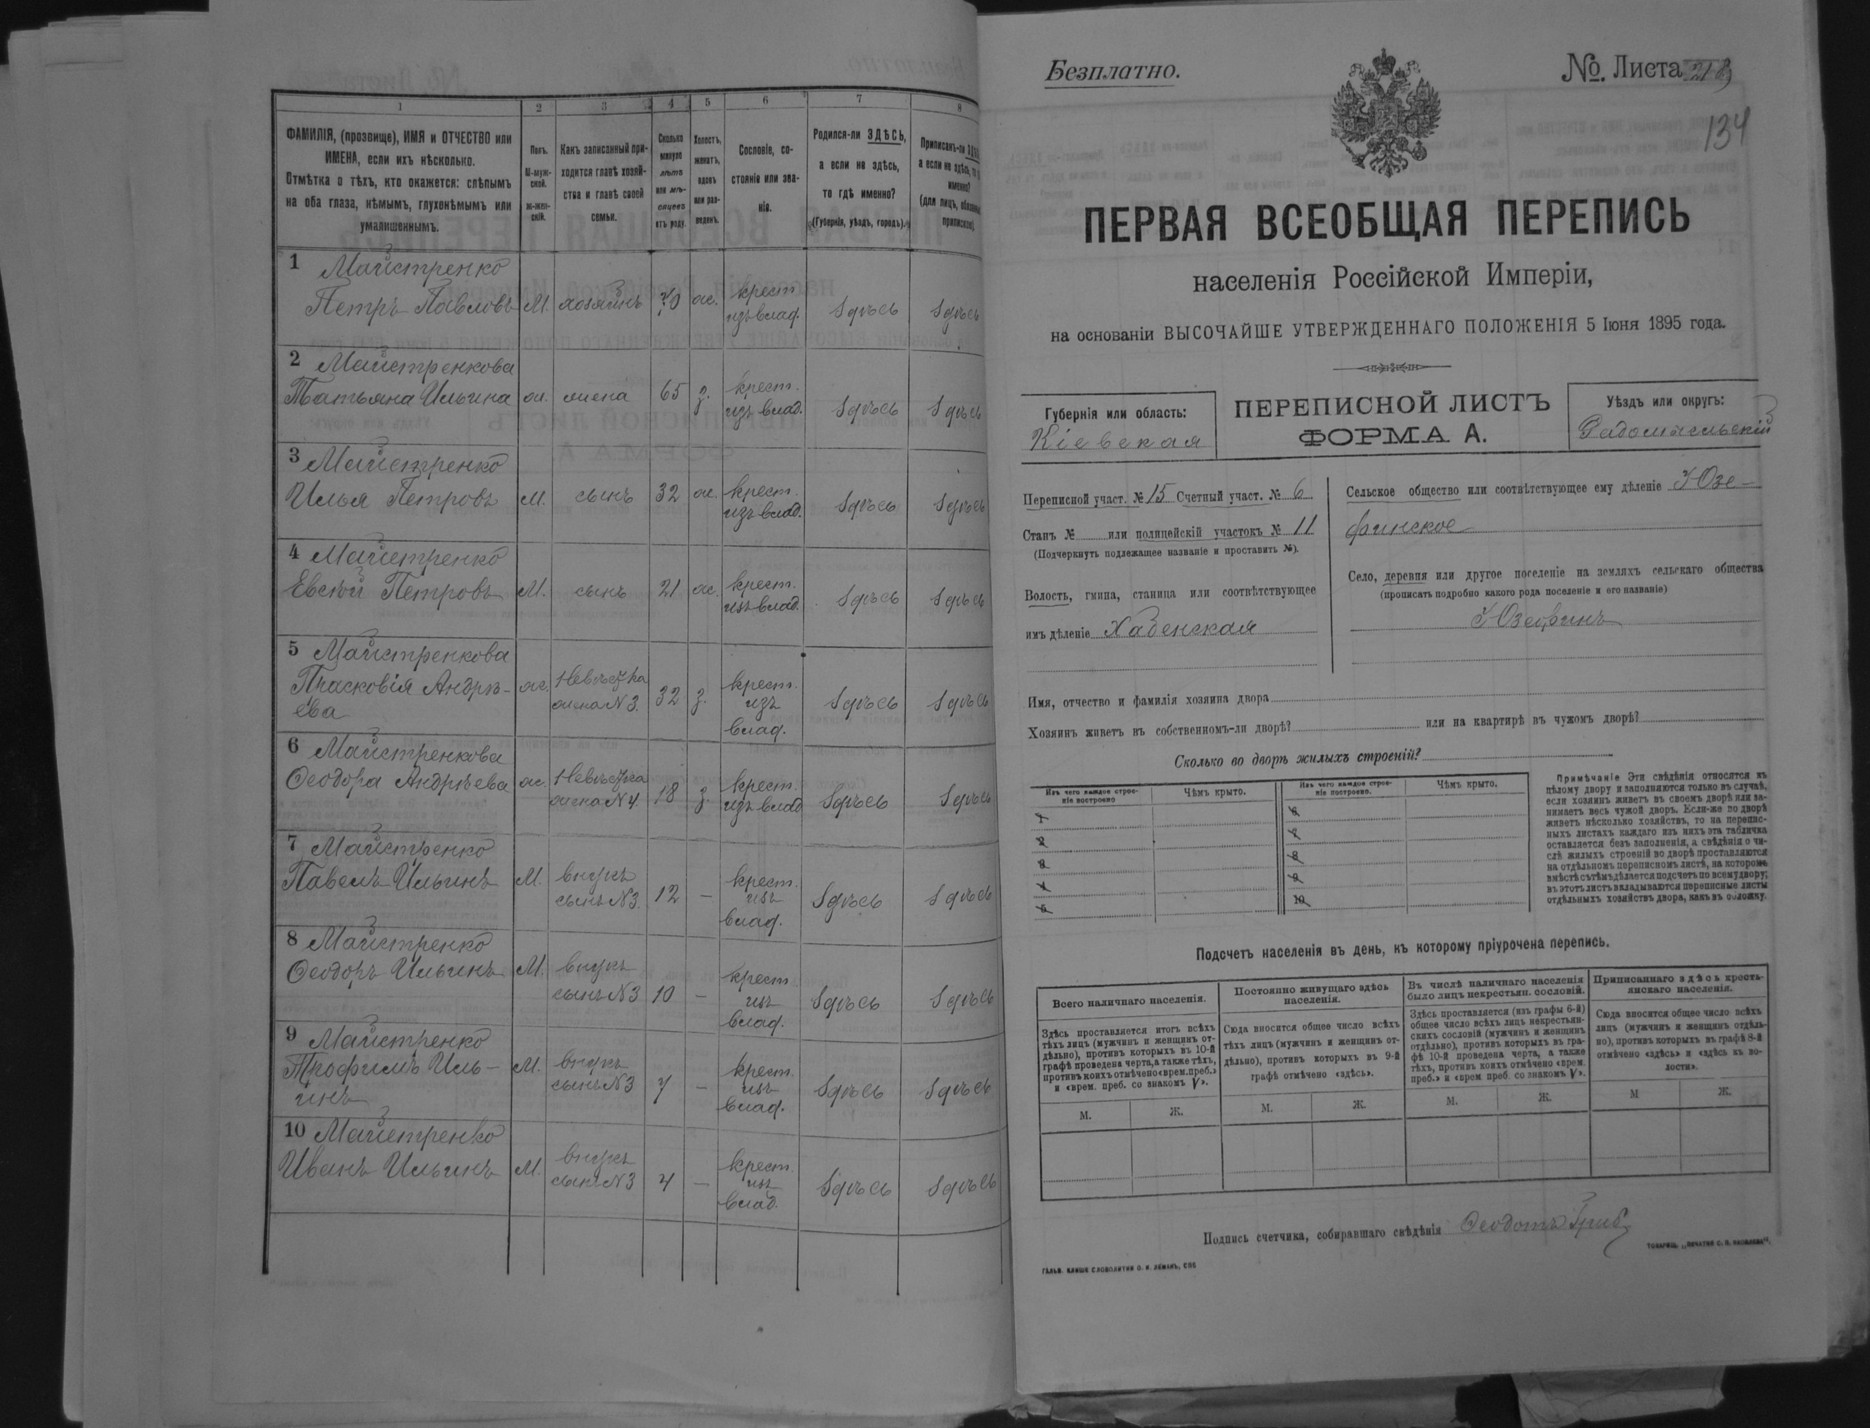 1 2 3 4 5 6 7 8
ФАМИЛІЯ, (прозвище), ИМЯ и ОТЧЕСТВО или
ИМЕНА, если ихъ нѣсколько.
Отмѣтка о тѣхъ, кто окажется: слѣпымъ
на оба глаза, нѣмымъ, глухонѣмымъ или
умалишеннымъ.
Полъ.
М-муж-
ской.
Ж-жен-
скій.
Какъ записанный при-
ходится главѣ хозяй-
ства и главѣ своей
семьи.
Сколько
минуло
лѣтъ
или мѣ-
сяцевъ
отъ роду.
Холостъ,
женатъ,
вдовъ
или раз-
веденъ.
Сословіе, со-
стояніе или зва-
ніе.
Родился-ли ЗДѢСЬ,
а если не здѣсь,
то гдѣ именно?
(Губернія, уѣздъ, городъ).
Приписанъ-ли
а если не здѣсь, то
именно?
(для лицъ,
1 Майстренко
Петръ Павловъ М. хозяинъ 70 ж. крест. изъ влад. здѣсь здѣсь
2 Майстренкова
Татьяна Ильина ж. жена 65 з. крест. изъ влад. здѣсь здѣсь
3 Майстренко
Илья Петровъ М. сынъ 32 ж. крест. изъ влад. здѣсь здѣсь
4 Майстренко
Евсѣй Петровъ М. сынъ 21 ж. крест. изъ влад. здѣсь здѣсь
5 Майстренкова
Прасковія Андрѣ-
ева ж. Невѣстка жена N 3. 32 з. крест. изъ влад. здѣсь здѣсь
6 Майстренкова
Ѳеодора Андрѣева ж. Невѣстка жена N 4. 18 з. крест. изъ влад здѣсь здѣсь
7 Майстренко
Павелъ Ильинъ М. внукъ сынъ N 3. 12 – крест. изъ влад. здѣсь здѣсь
8 Майстренко
Ѳеодоръ Ильинъ М. внукъ сынъ N 3 10 – крест. изъ влад. здѣсь здѣсь
9 Майстренко
Трофимъ Иль-
инъ М. внукъ сынъ N 3 7 – крест. изъ влад. здѣсь здѣсь
10 Майстренко
Иванъ Ильинъ М. внукъ сынъ N 3 4 – крест. изъ влад. здѣсь здѣсь
Безплатно.
№. Листа
134
ПЕРВАЯ ВСЕОБЩАЯ ПЕРЕПИСЬ
населенія Россійской Имперіи,
на основаніи ВЫСОЧАЙШЕ УТВЕРЖДЕННАГО ПОЛОЖЕНІЯ 5 Іюня 1895 года.
Губернія или область:
Кіевская
ПЕРЕПИСНОЙ ЛИСТЪ
ФОРМА А.
Уѣздъ или округъ:
Радомысльскій
Переписной участ. № 15 Счетный участ. № 6
Станъ № или полицейскій участокъ № 11
(Подчеркнуть подлежащее названіе и проставить №).
Волость, гмина, станица или соотвѣтствующее
имъ дѣленіе Хабенская
Сельское общество или соотвѣтствующее ему дѣленіе Юзе-
финское
Село, деревня или другое поселеніе на земляхъ сельскаго общества
(прописать подробно какого рода поселеніе и его названіе)
Юзефинъ
Имя, отчество и фамилія хозяина двора
Хозяинъ живетъ въ собственномъ-ли дворѣ? или на квартирѣ въ чужомъ дворѣ?
Сколько во дворѣ жилыхъ строеній?
Изъ чего каждое строе-
ніе построено
Чѣмъ крыто.
Изъ чего каждое строе-
ніе построено.
Чѣмъ крыто.
1
2
3
4
5
6
7
8
9
10
Примѣчаніе Эти свѣдѣнія относятся къ
цѣлому двору и заполняются только въ случаѣ,
если хозяинъ живетъ въ своемъ дворѣ или за-
нимаетъ весь чужой дворъ. Если-же во дворѣ
живетъ нѣсколько хозяйствъ, то на перепис-
ныхъ листахъ каждаго изъ нихъ эта табличка
оставляется безъ заполненія, а свѣдѣнія о чи-
слѣ жилыхъ строеній во дворѣ проставляются
на отдѣльномъ переписномъ листѣ, на которомъ
вмѣстѣ съ тѣмъ дѣлается подсчетъ по всему двору;
въ этотъ листъ вкладываются переписные листы
отдѣльныхъ хозяйствъ двора, какъ въ обложку.
Подсчетъ населенія въ день, къ которому пріурочена перепись.
Всего наличнаго населенія.
Здѣсь проставляется итогъ всѣхъ
тѣхъ лицъ (мужчинъ и женщинъ от-
дѣльно), противъ которыхъ въ 10-й
графѣ проведена черта, а также тѣхъ,
противъ коихъ отмѣчено «врем. преб.»
и «врем. преб. со знакомъ V».
М. Ж.
Постоянно живущаго здѣсь
населенія.
Сюда вносится общее число всѣхъ
тѣхъ лицъ (мужчинъ и женщинъ от-
дѣльно), противъ которыхъ въ 9-й
графѣ отмѣчено «здѣсь».
М. Ж.
Въ числѣ наличнаго населенія
было лицъ некрестьян. сословій.
Здѣсь проставляется (изъ графы 6-й)
общее число всѣхъ лицъ некрестьян-
скихъ сословій (мужчинъ и женщинъ
отдѣльно), противъ которыхъ въ гра-
фѣ 10-й проведена черта, а также
тѣхъ, противъ коихъ отмѣчено «врем.
преб.» и «врем. преб. со знакомъ V».
М. Ж.
Приписаннаго здѣсь кресть-
янскаго населенія.
Сюда вносится общее число всѣхъ
лицъ (мужчинъ и женщинъ отдѣль-
но), противъ которыхъ въ графѣ 8-й
отмѣчено «здѣсь» и «здѣсь въ во-
лости».
М Ж.
Подпись счетчика, собиравшаго свѣдѣнія Ѳеодотъ